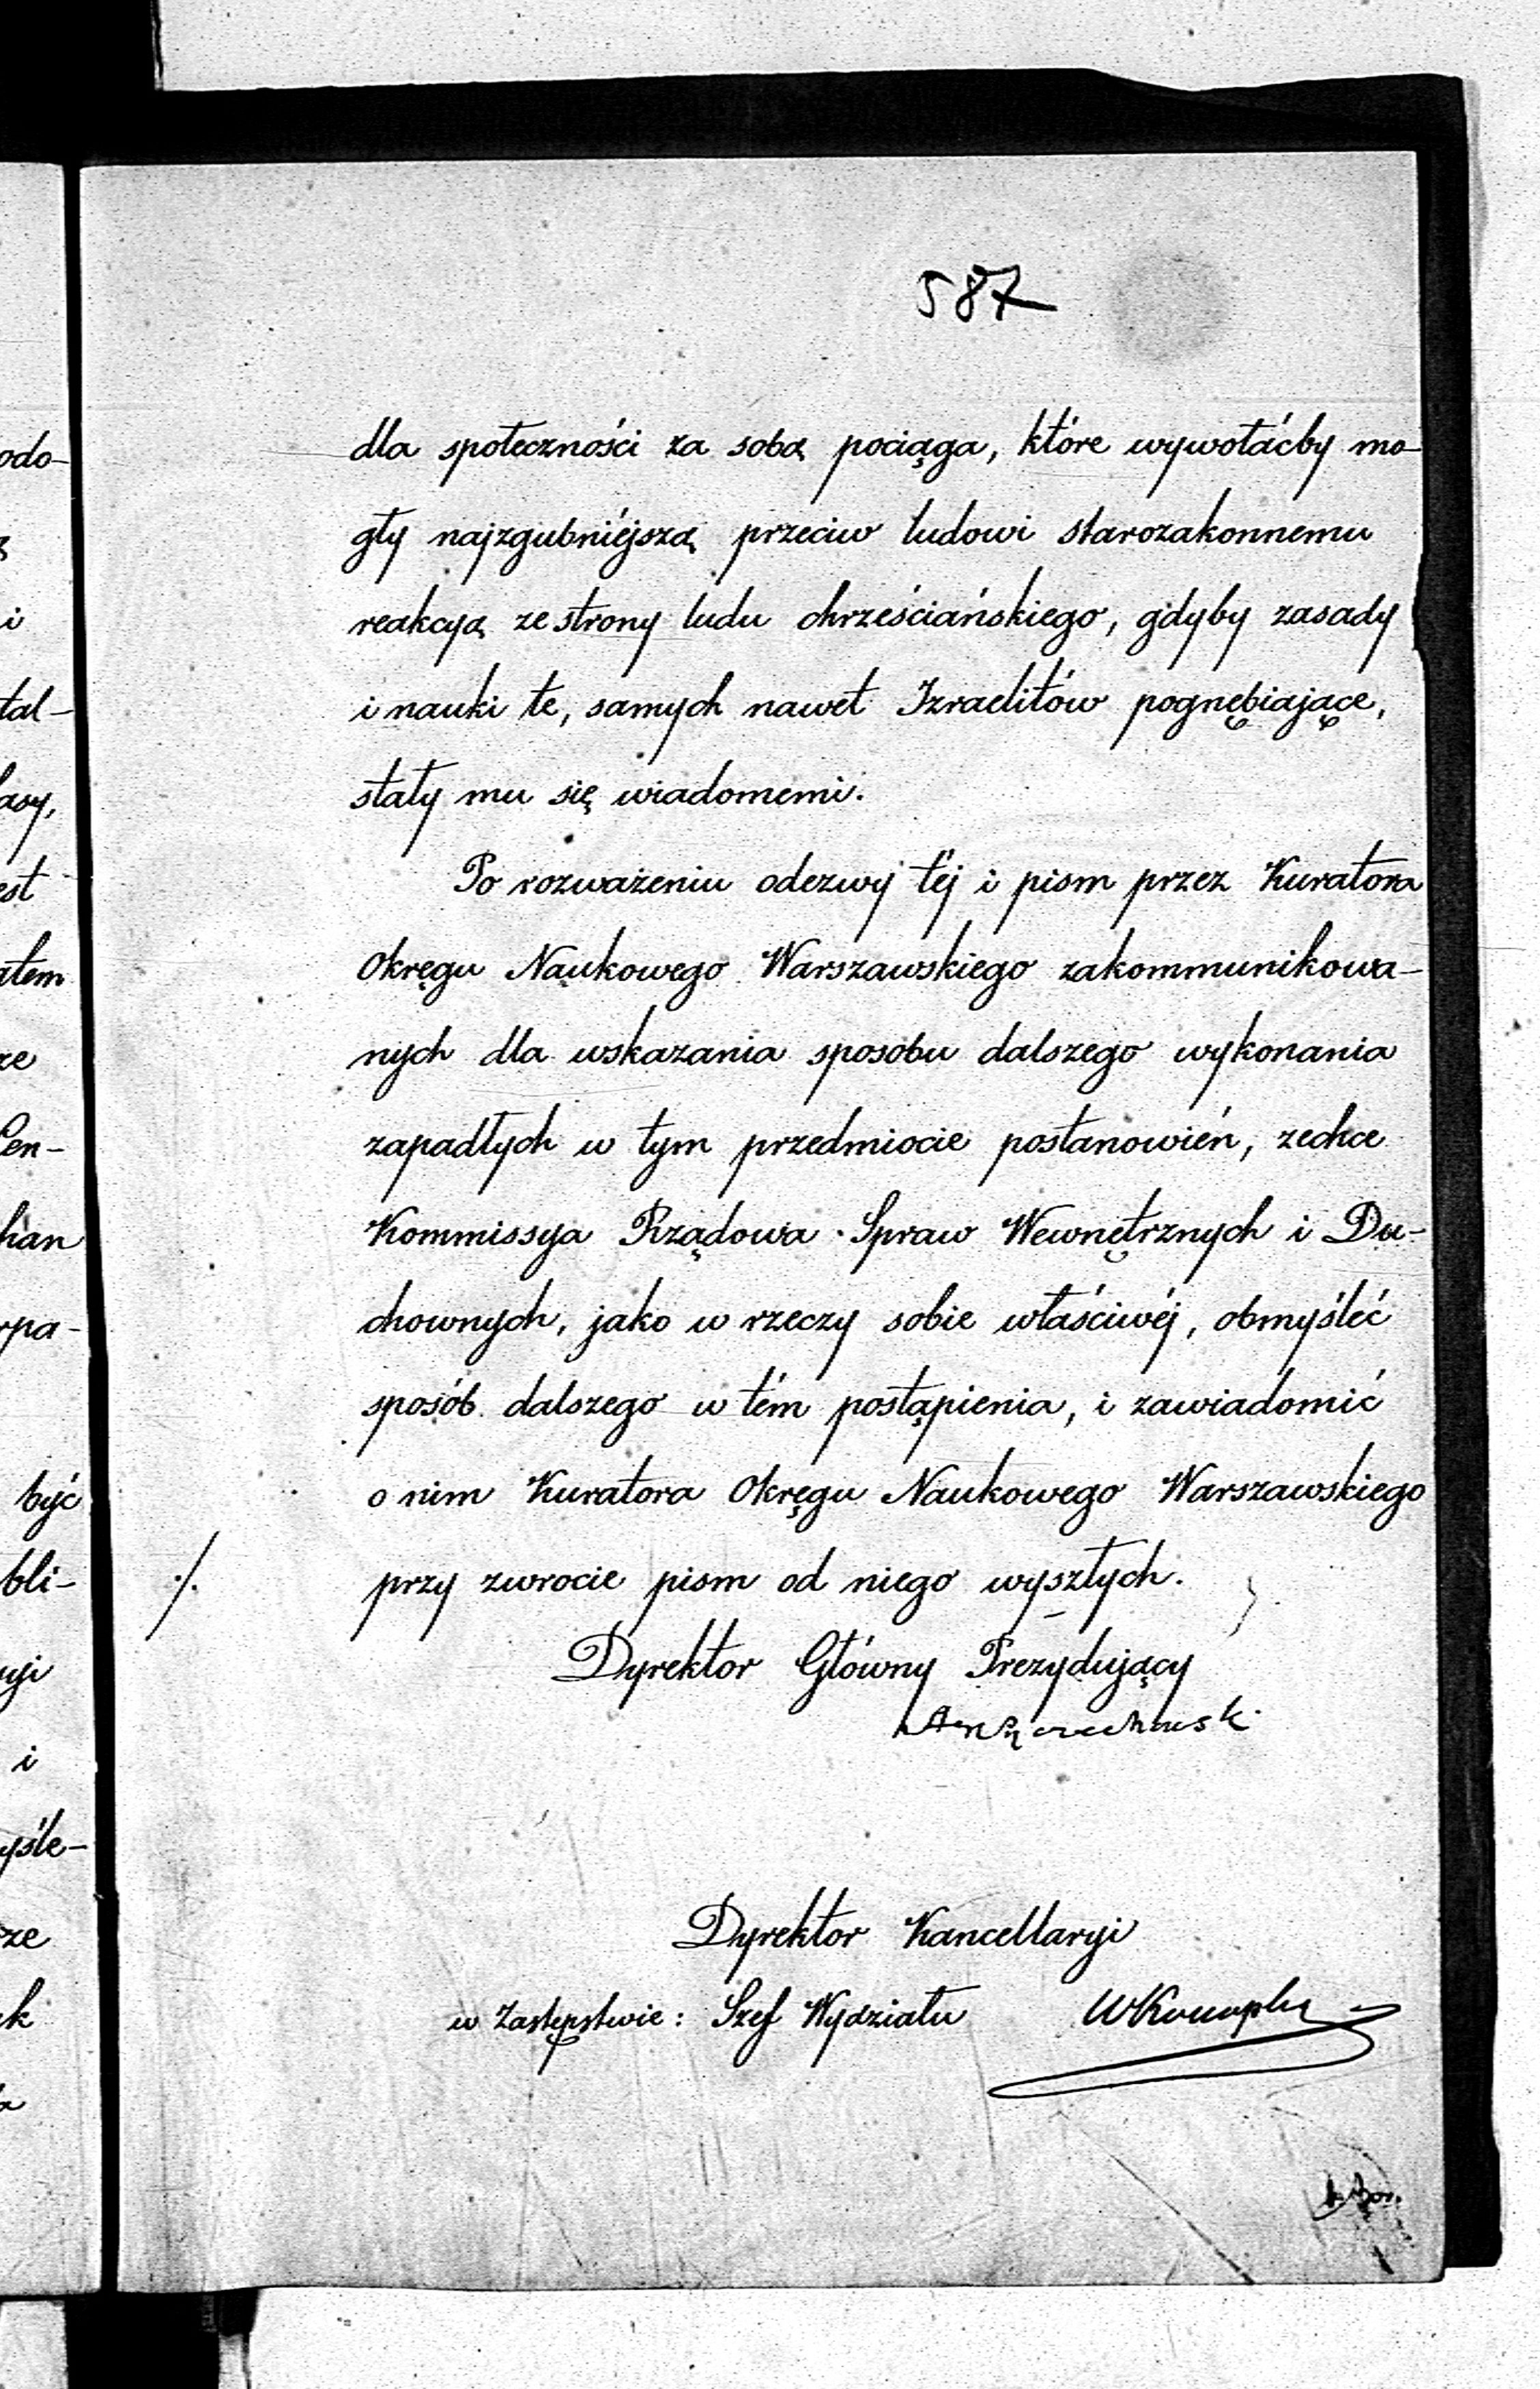 587
dla społeczności za sobą pociąga, które wywołáćby mo-
gły najzgubniéjszą przeciw ludowi starozakonnemu
reakcyą ze strony ludu chrześciańskiego, gdyby zasady
i nauki te, samych nawet Izraelitów pognębiające,
stały mu się wiadomemi.
Po rozważeniu odezwy téj i pism przez Kuratora
Okręgu Naukowego Warszawskiego zakommunikowa-
nych dla wskazania sposobu dalszego wykonania
zapadłych w tym przedmiocie postanowień, zechce
Kommissya Rządowa Spraw Wewnętrznych i Du-
chownych, jako w rzeczy sobie właściwéj, obmyśleć
sposób dalszego w tém postąpienia, i zawiadomić
o nim Kuratora Okręgu Naukowego Warszawskiego
./. przy zwrocie pism od niego wyszłych.
Dyrektor Główny Prezydujący
Dyrektor Kancellaryi
w Zastępstwie: Szef Wydziału
odo-
i
tal-
est
być
bli-
i
yśle-